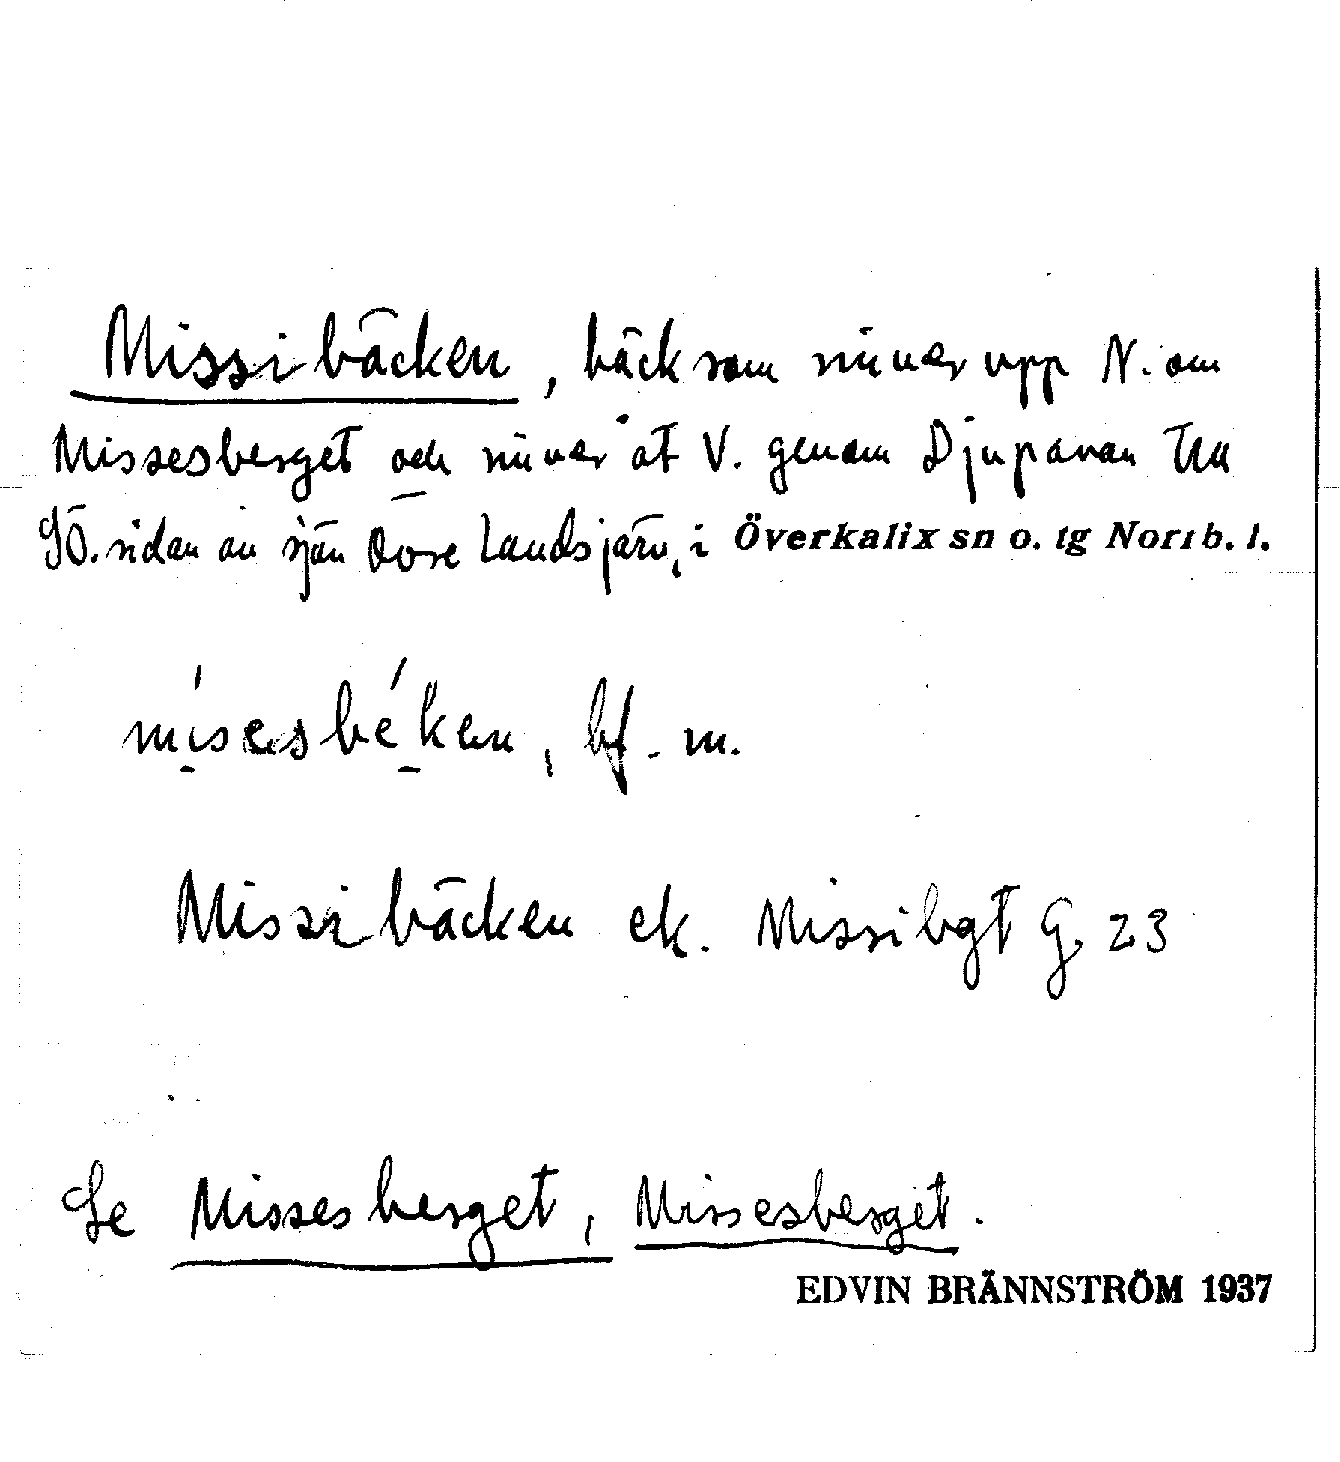 Missibäcken, bäck som rinner upp N. om
Missesberget och rinner åt V. genom Djupåvan till
SÖ. sidan av sjön Övre Landsjärv, i Överkalix sn o. tg Norrb. l.
mísesbéken, bf. m.
Missibäcken ek. Missibgt G. 23
Se Missesberget, Missesberget.
EDVIN BRÄNNSTRÖM 1937